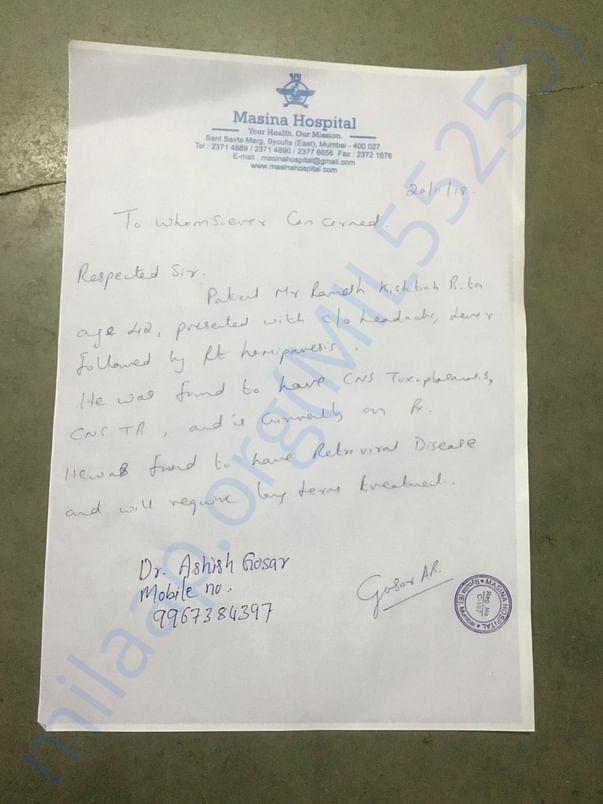 Masina Hospital
Your Health. Our Mission.
Sant Savta Marg, Byculla (East), Mumbai - 400 027.
Tel : 2371 4889 / 2371 4890 / 2377 6656 Fax : 2372 1676
E-mail : masinahospital@gmail.com
www.masinahospital.com
20/11/18.
To whomsoever Concerned.
Respected Sir.
Patient Mr Ramesh
age 42, presented with c/o headache, fever
followed by Rt hemiparesis.
He was found to have CNS Toxoplasmosis,
CNS TB, and is currently on Rx.
He was found to have Retroviral Disease
and will require long term treatment.
Dr. Ashish Gosar
Mobile no.
9967384397
Gosar AR.
MASINA HOSPITAL
Reg. No.
milaap.org(MIL55255)